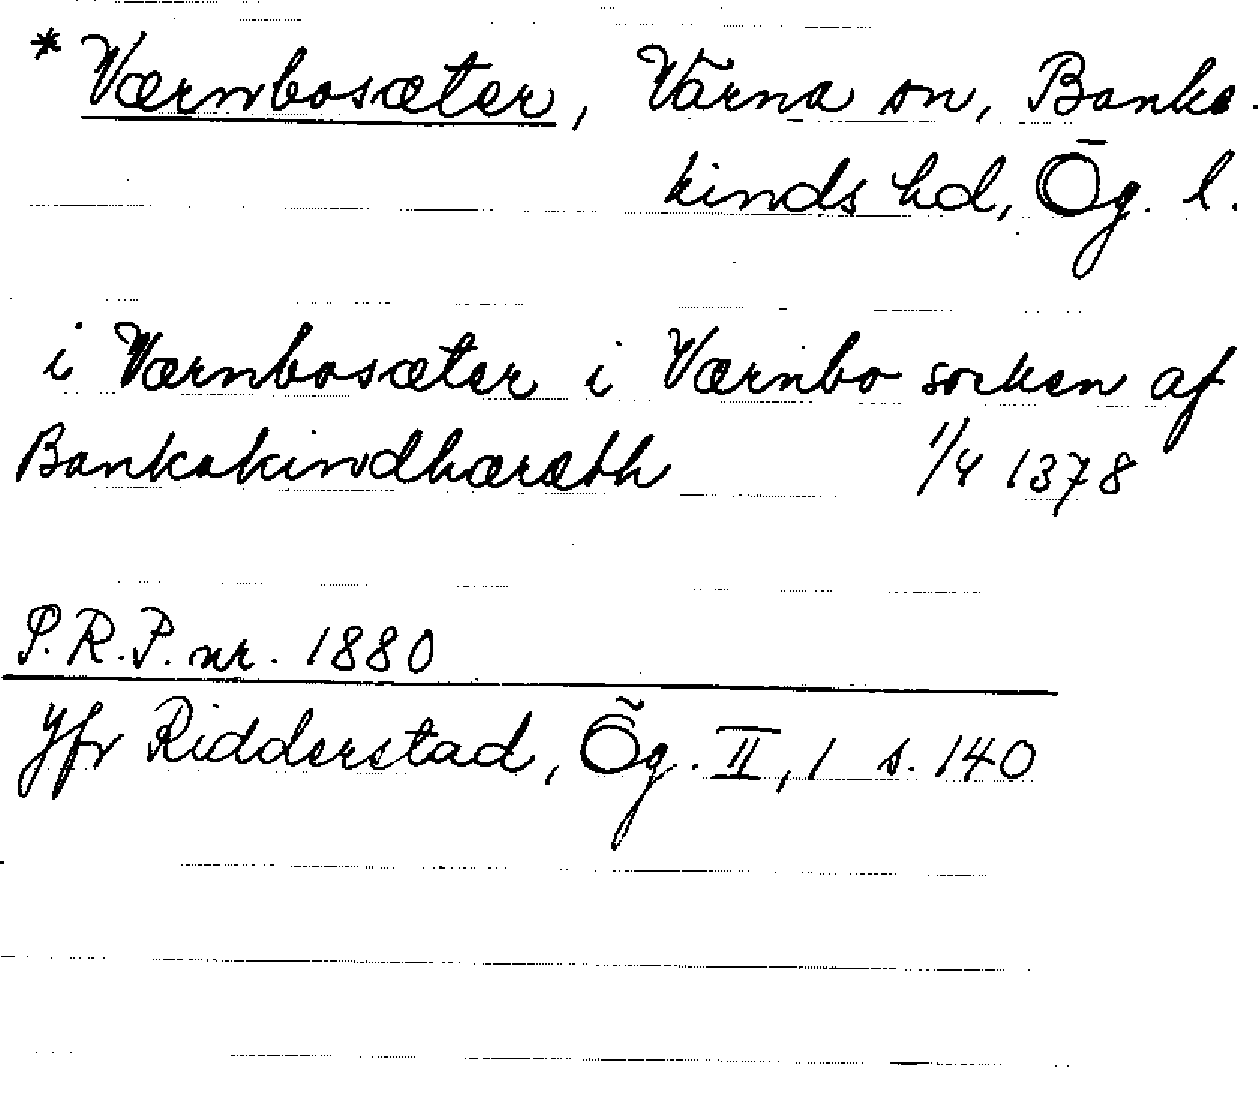 *Værnbosæter, Värna sn, Banke-
kinds hd, Ög. l.
i Værnbosæter i Værnbo socken af
Bankakindhæræth 1/4 1378
S.R.P. nr. 1880
Jfr Ridderstad, Ög. II, 1 s. 140